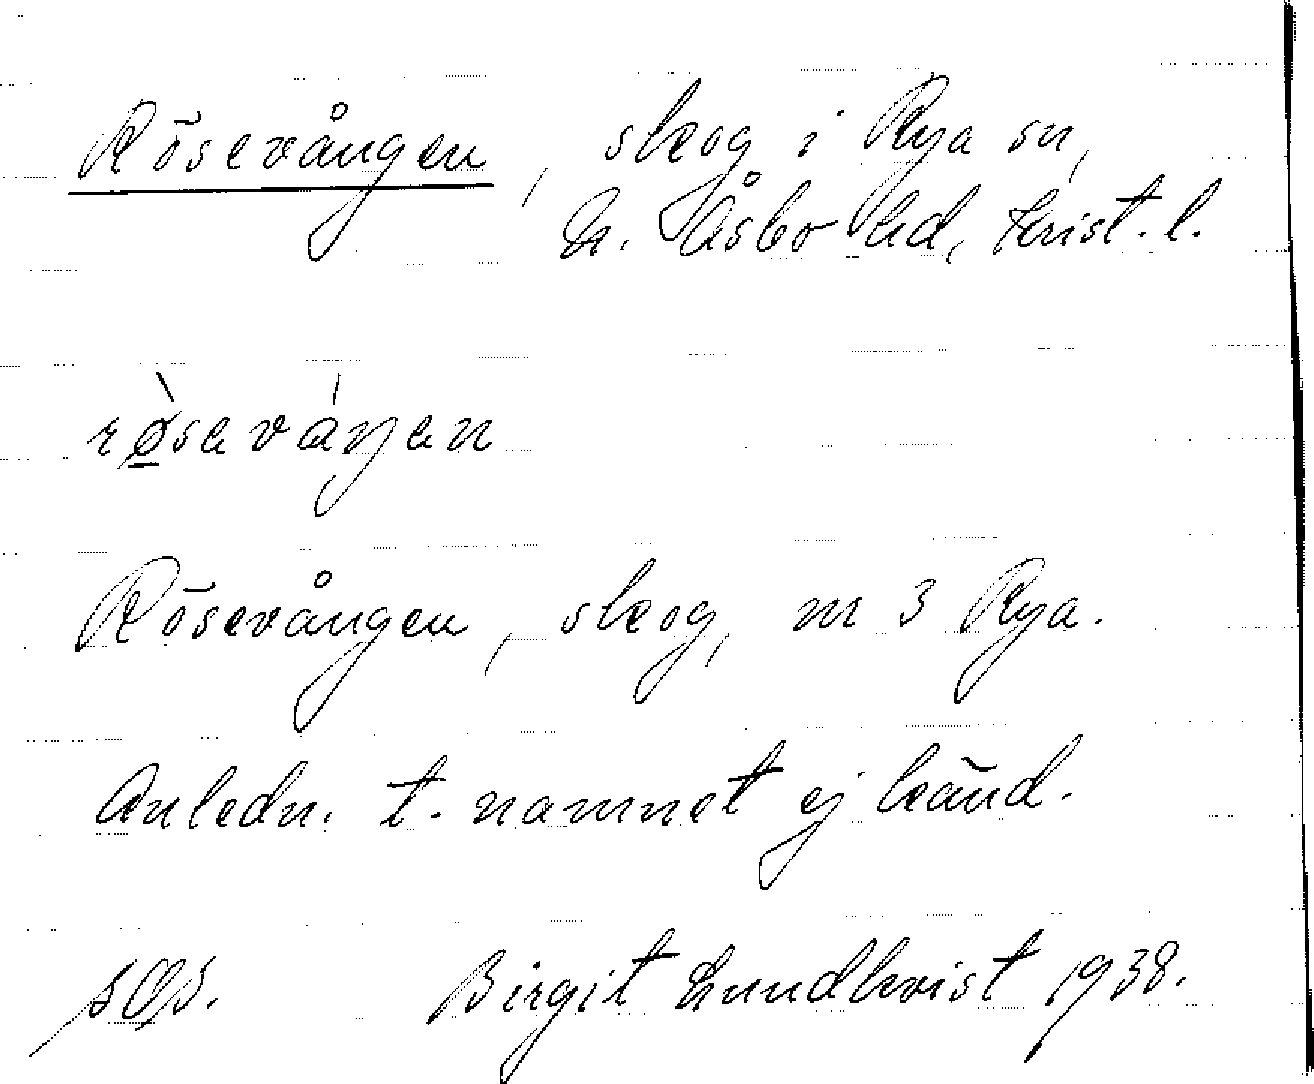 Rösevången, skog i Rya sn,
N. Åsbo hd, Krist. l.
rø̱̀seváŋen
Rösevången, skog, nr 3 Rya.
Anledn. t. namnet ej känd.
Birgit Lundkvist 1938.